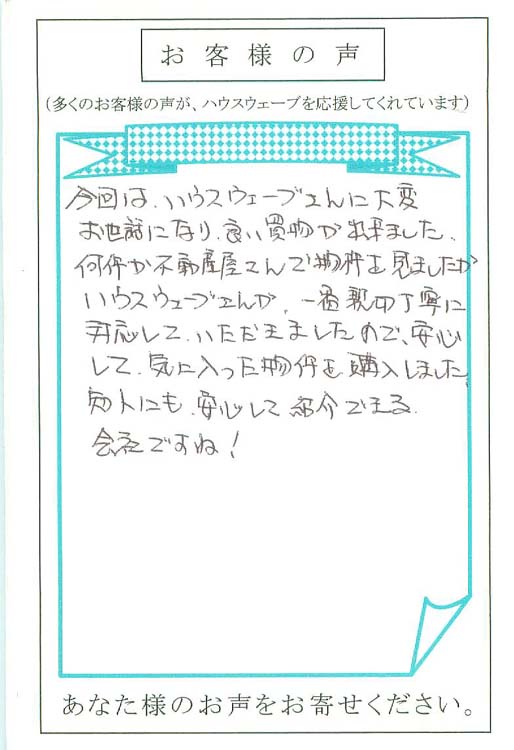 お客様の声
(多くのお客様の声が、ハウスウェーブを応援してくれています)
今回は、ハウスウェーブさんに大変
お世話になり、良い買物が出来ました、
何件か不動産屋さんで物件を見ましたが
ハウスウェーブさんが、一番親切丁寧に
対応して、いただきましたので、安心
して、気に入った物件を購入しました。
知人にも、安心して紹介できる、
会社ですね!
あなた様のお声をお寄せください。